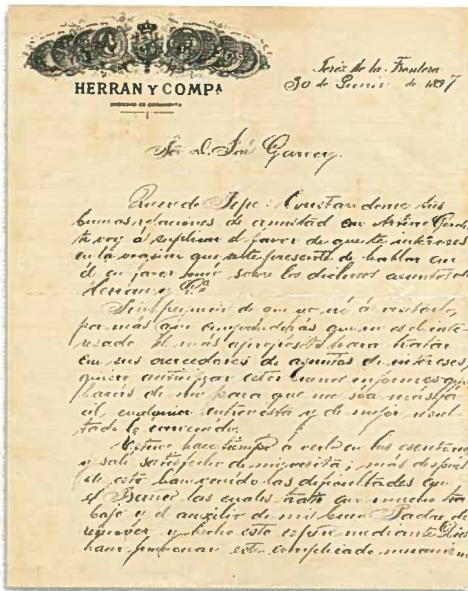 HERRAN Y COMPª
SOCIEDAD EN COMANDITA
Jerez de la Frontera
30 de Junio de 1897
Sor D. José Garvey.
Querido Pepe: Constandome tus
buenas relaciones de amistad con
te voy á suplicar el favor de que te intereses
en la ocasion que se te presente de hablar con
él en favor sobre los dichosos asuntos de
Herrán y Cª
Sin perjuicio de que yo vá á visitarlo,
por más que comprenderás que no es el inte-
resado el mas apropósito para tratar
con sus acreedores de asuntos de intereses,
quiero antes buenos informes que
harás de mi para que me sea más fá
cil, cualquier entrevista y de mejor resul-
tado lo convenido.
Estuve hace tiempo á verlo en los escritorios
y salí satisfecho de mi visita; más despues
de esto han venido las dificultades con
el Banco las cuales trato con mucho tra
bajo y el auxilio de mi buen Padre de
remover y hecho este esfuerzo mediante Dios
hará funcionar este complicado mecanismo